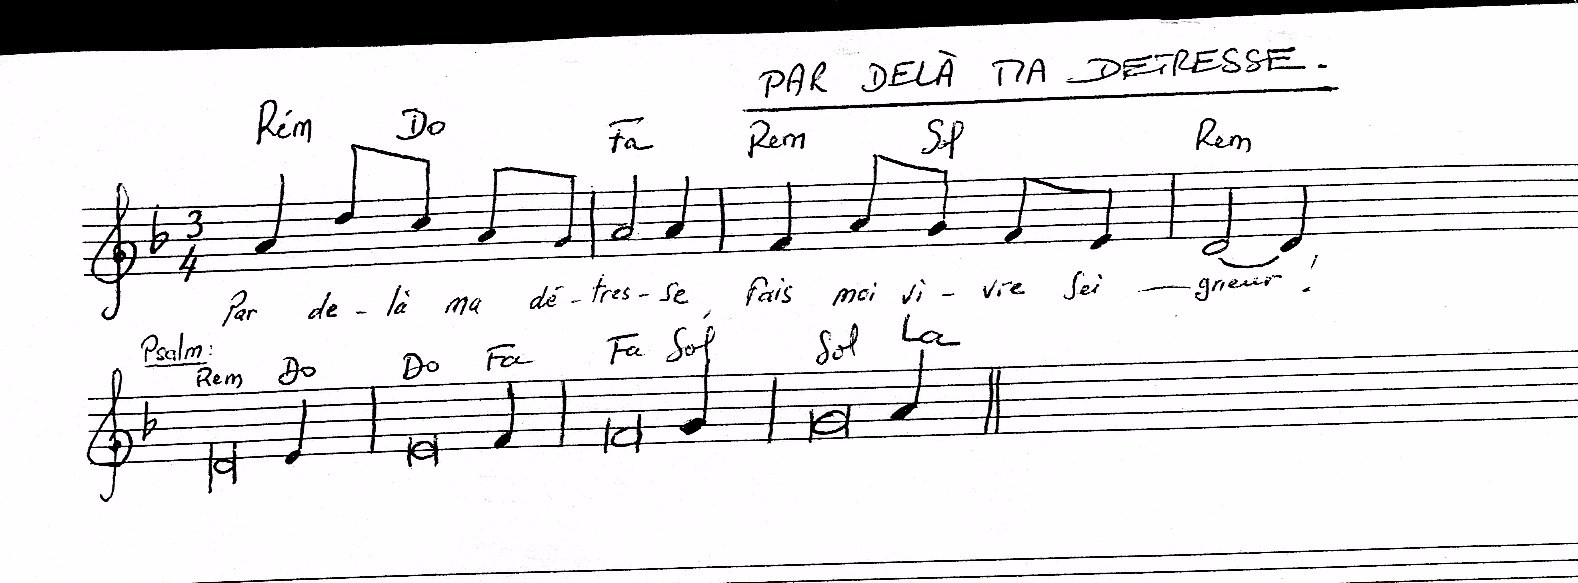 PAR DELÀ MA DETRESSE.
Rém Do Fa Rem Sol Rem
3
4
Par de-là ma dé-tres-se, fais moi vi-vre Sei—gneur !
Psalm:
Rem Do Do Fa Fa Sol Sol La